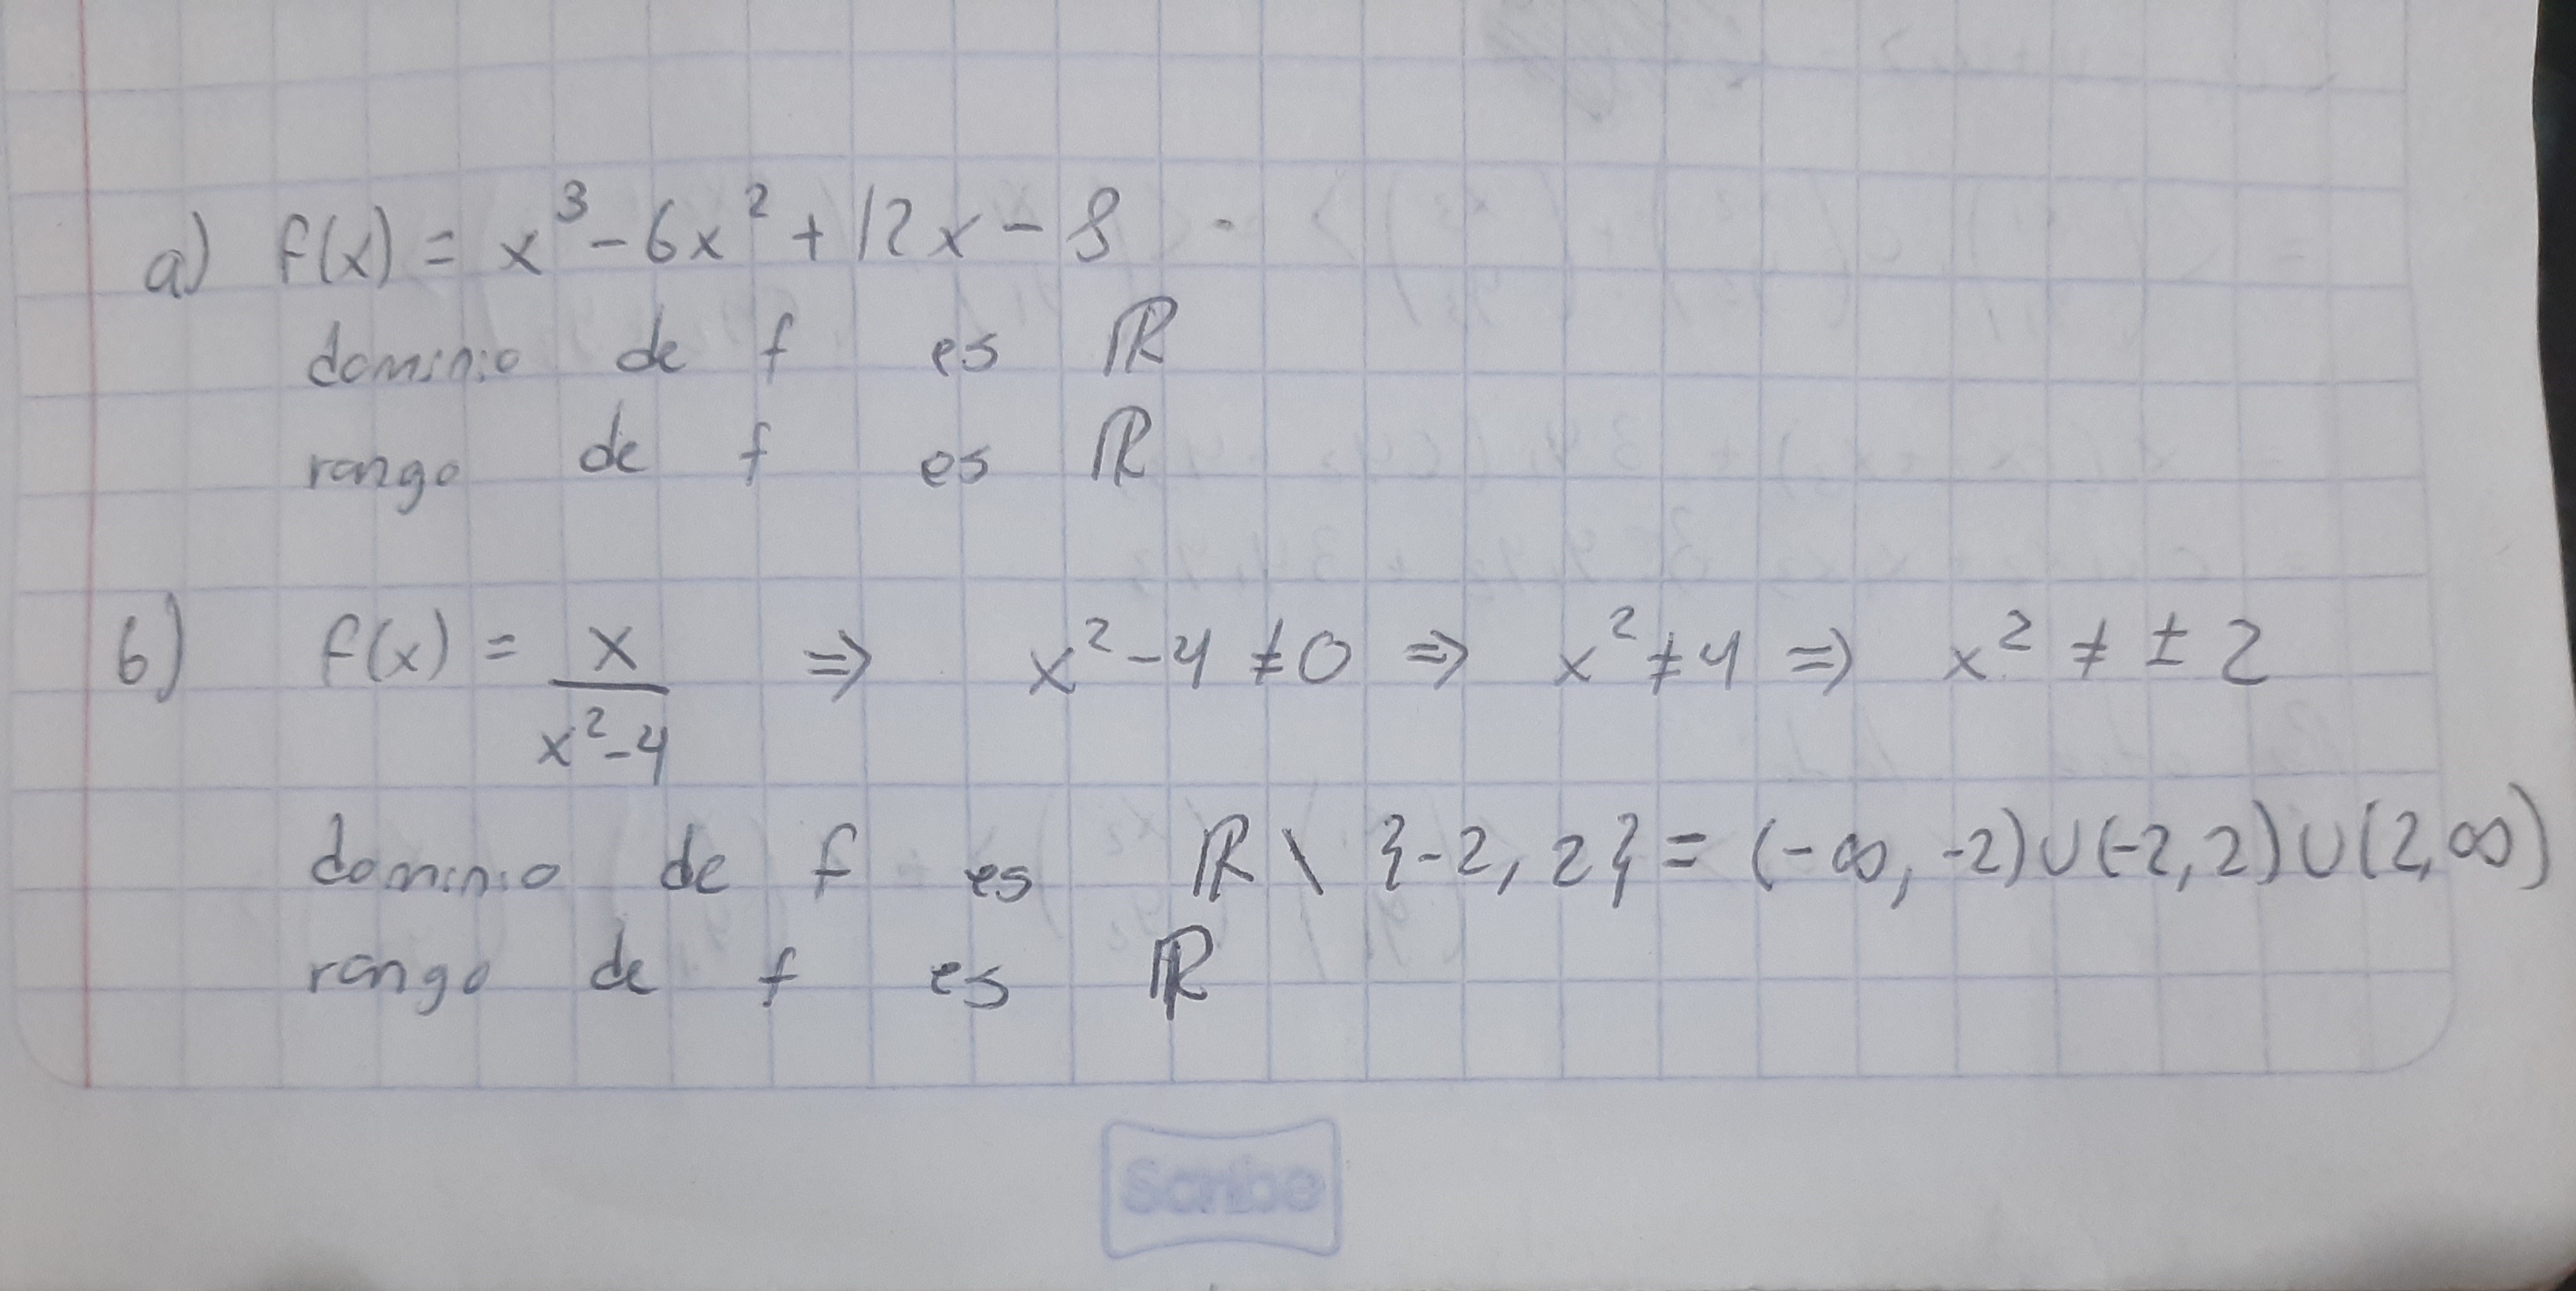 a) f(x) = x³ - 6x² + 12x - 8
dominio de f es ℝ
rango de f es ℝ
b) f(x) = x/(x²-4) ⇒ x² - 4 ≠ 0 ⇒ x² ≠ 4 ⇒ x² ≠ ± 2
dominio de f es ℝ \ {-2, 2} = (-∞, -2) ∪ (-2, 2) ∪ (2, ∞)
rango de f es ℝ
Scribe